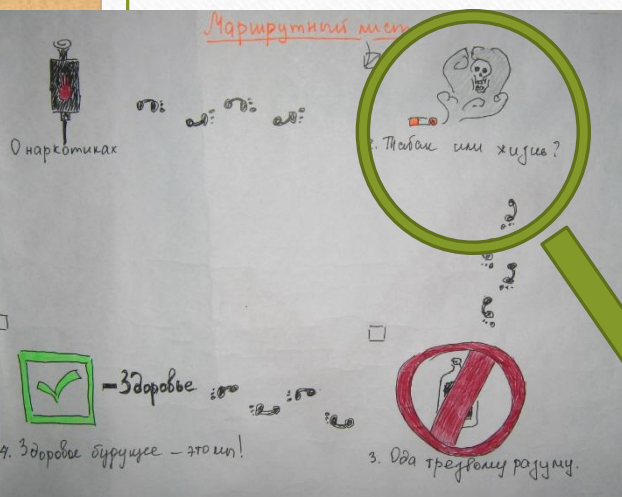 Маршрутный лист
О наркотиках
2. Табак или жизнь?
– Здоровье
4. Здоровое будущее – это мы!
3. Ода трезвому разуму.